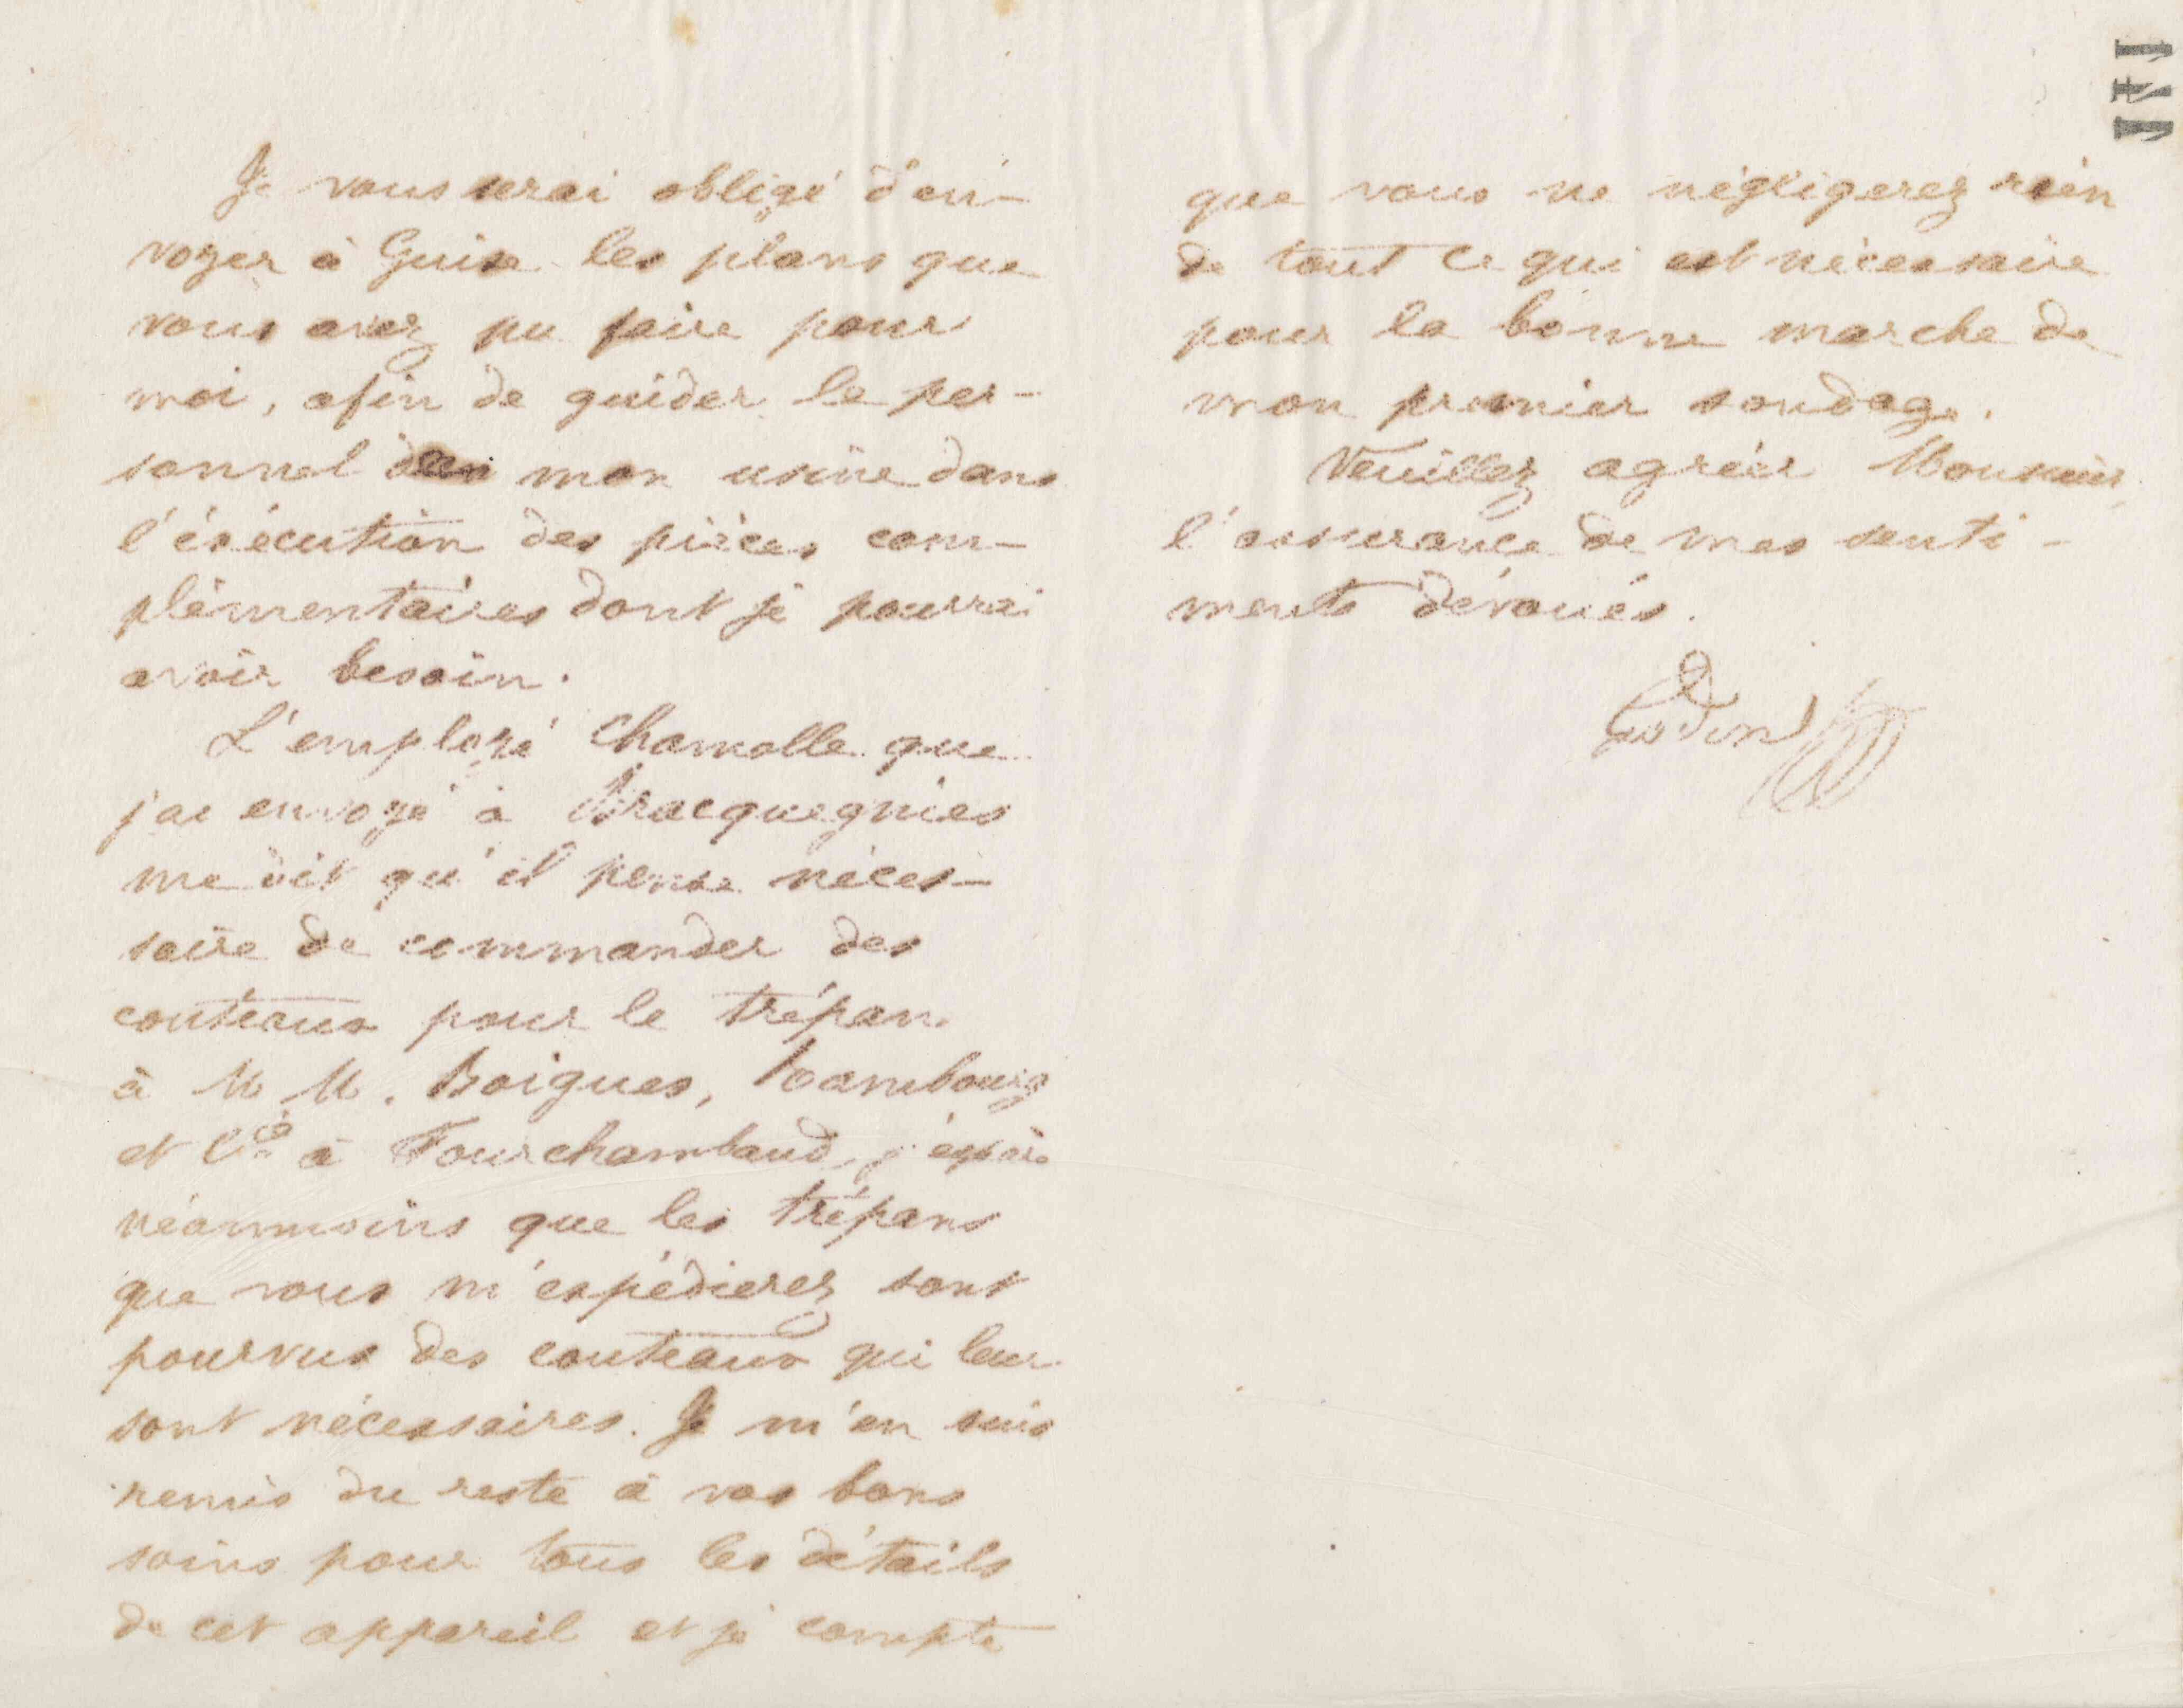 Je vous serai obligé d'en-
voyer à Guise les plans que
vous avez pu faire pour
moi, afin de guider le per-
sonnel de mon usine dans
l'exécution des pièces com-
plémentaires dont je pourrai
avoir besoin.
L'employé Chamolle que
j'ai envoyé à Bracquegnies
me dit qu'il pense néces-
saire de commander des
couteaux pour le trépan
à M M. Boigues, Rambourg
et Cie à Fourchambaud, j'espère
néanmoins que les trépans
que vous m'expédierez sont
pourvus des couteaux qui leur
sont nécessaires. Je m'en suis
remis du reste à vos bons
soins pour tous les détails
de cet appareil et je compte
que vous ne négligerez rien
de tout ce qui est nécessaire
pour la bonne marche de
mon premier sondage.
Veuillez agréer Monsieur,
l'assurance de mes senti-
ments dévoués.
Godin